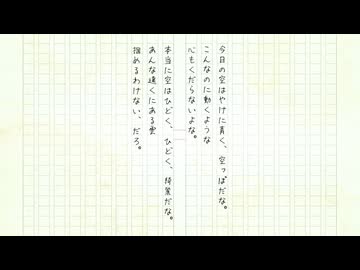 今日の空はやけに青く、空っぽだな。
こんなのに動くような
心もくだらないよな。
本当に空はひどく、ひどく、綺麗だな。
あんな遠くにある雲
掴めるわけない、だろ。